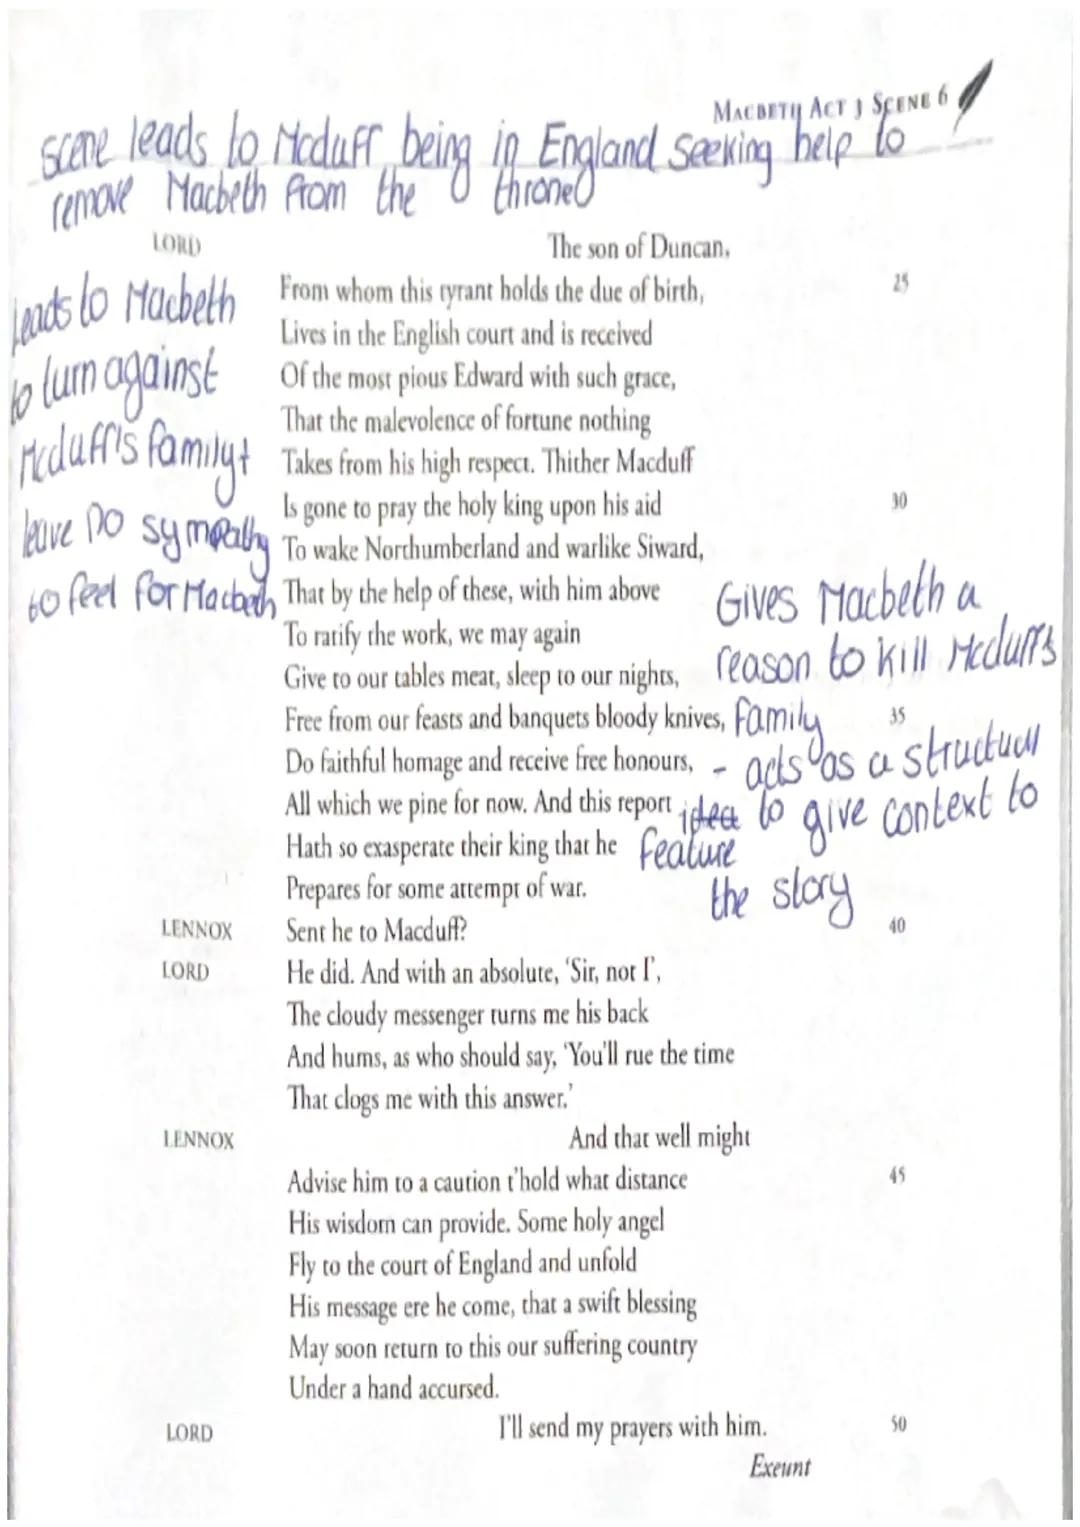 MACBETH ACT 3 SCENE 6
scene leads to Mcduff being in England seeking help to
remove Macbeth from the throne
LORD The son of Duncan,
From whom this tyrant holds the due of birth, 25
Lives in the English court and is received
Of the most pious Edward with such grace,
That the malevolence of fortune nothing
Takes from his high respect. Thither Macduff
Is gone to pray the holy king upon his aid 30
To wake Northumberland and warlike Siward,
That by the help of these, with him above
To ratify the work, we may again
Give to our tables meat, sleep to our nights,
Free from our feasts and banquets bloody knives, 35
Do faithful homage and receive free honours,
All which we pine for now. And this report
Hath so exasperate their king that he
Prepares for some attempt of war.
LENNOX Sent he to Macduff? 40
LORD He did. And with an absolute, 'Sir, not I',
The cloudy messenger turns me his back
And hums, as who should say, 'You'll rue the time
That clogs me with this answer.'
LENNOX And that well might
Advise him to a caution t'hold what distance 45
His wisdom can provide. Some holy angel
Fly to the court of England and unfold
His message ere he come, that a swift blessing
May soon return to this our suffering country
Under a hand accursed.
LORD I'll send my prayers with him. 50
Exeunt
Leads to Macbeth
to turn against
Mcduff's family +
leave no sympathy
to feel for Macbeth
Gives Macbeth a
reason to kill Mcduff's
family
- acts as a structual
idea to give context to
feature
the story